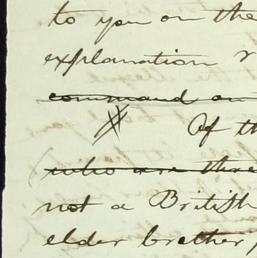 to you on the
explanation
command on
Of th
who are three
not a British
elder brother